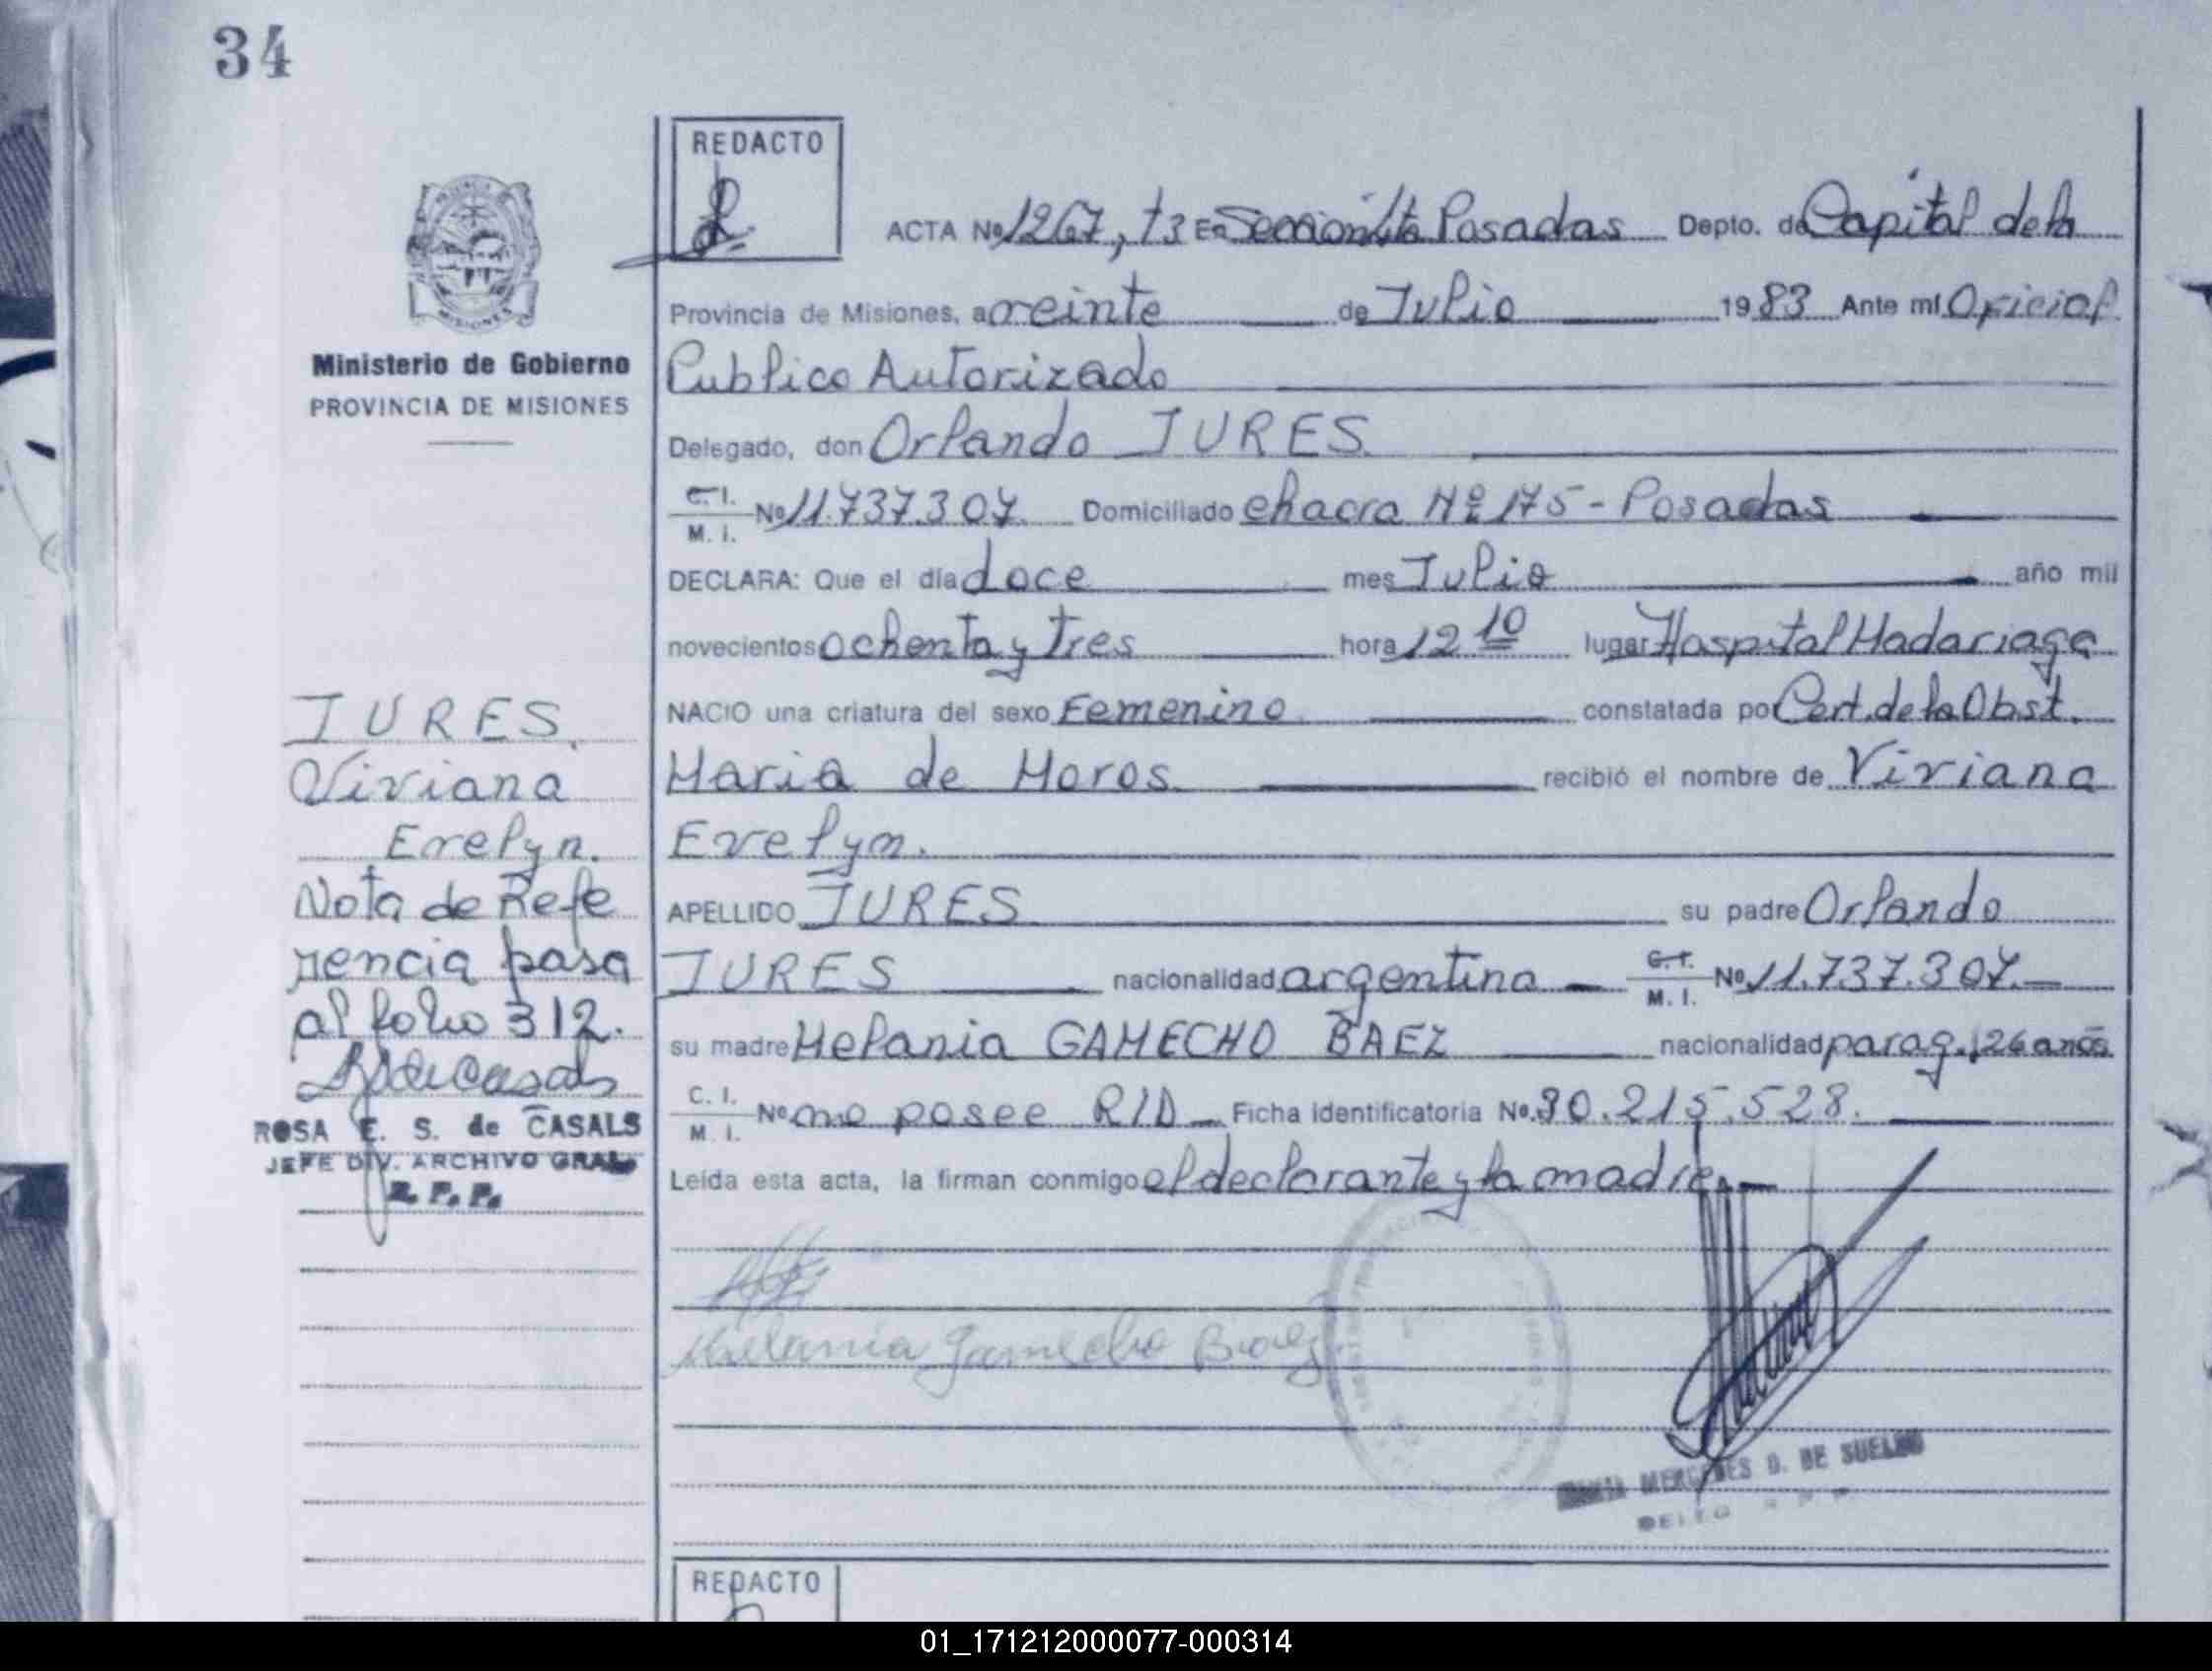 34
REDACTO
ACTA Nº 1267, t3 En Sección 1ta Posadas Depto. de Capital de la
Provincia de Misiones, a veinte de Julio 1983 Ante mí Oficial
Publico Autorizado
Delegado, don Orlando JURES
C.I. M.I. Nº 11.737.307. Domiciliado chacra Nº 175 - Posadas
DECLARA: Que el día doce mes Julio año mil
novecientos ochenta y tres hora 12 10 lugar Hospital Madariaga
NACIO una criatura del sexo Femenino constatada por Cert. de la Obst.
Maria de Moros recibió el nombre de Viviana
Evelyn.
APELLIDO JURES su padre Orlando
JURES nacionalidad argentina C.I. M.I. Nº 11.737.307.
su madre Melania GAMECHO BAEZ nacionalidad parag. 26 años
C.I. M.I. Nº no posee RID Ficha identificatoria Nº 30.215.528.
Leída esta acta, la firman conmigo el declarante y la madre.
Melania Gamecho Baez
MERCEDES D. DE SUELDO
MISIONES
Ministerio de Gobierno
PROVINCIA DE MISIONES
JURES.
Viviana
Evelyn.
Nota de Refe
rencia pasa
al folio 312.
ROSA E. S. de CASALS
JEFE DIV. ARCHIVO GRAL.
R. P. P.
REDACTO
01_171212000077-000314